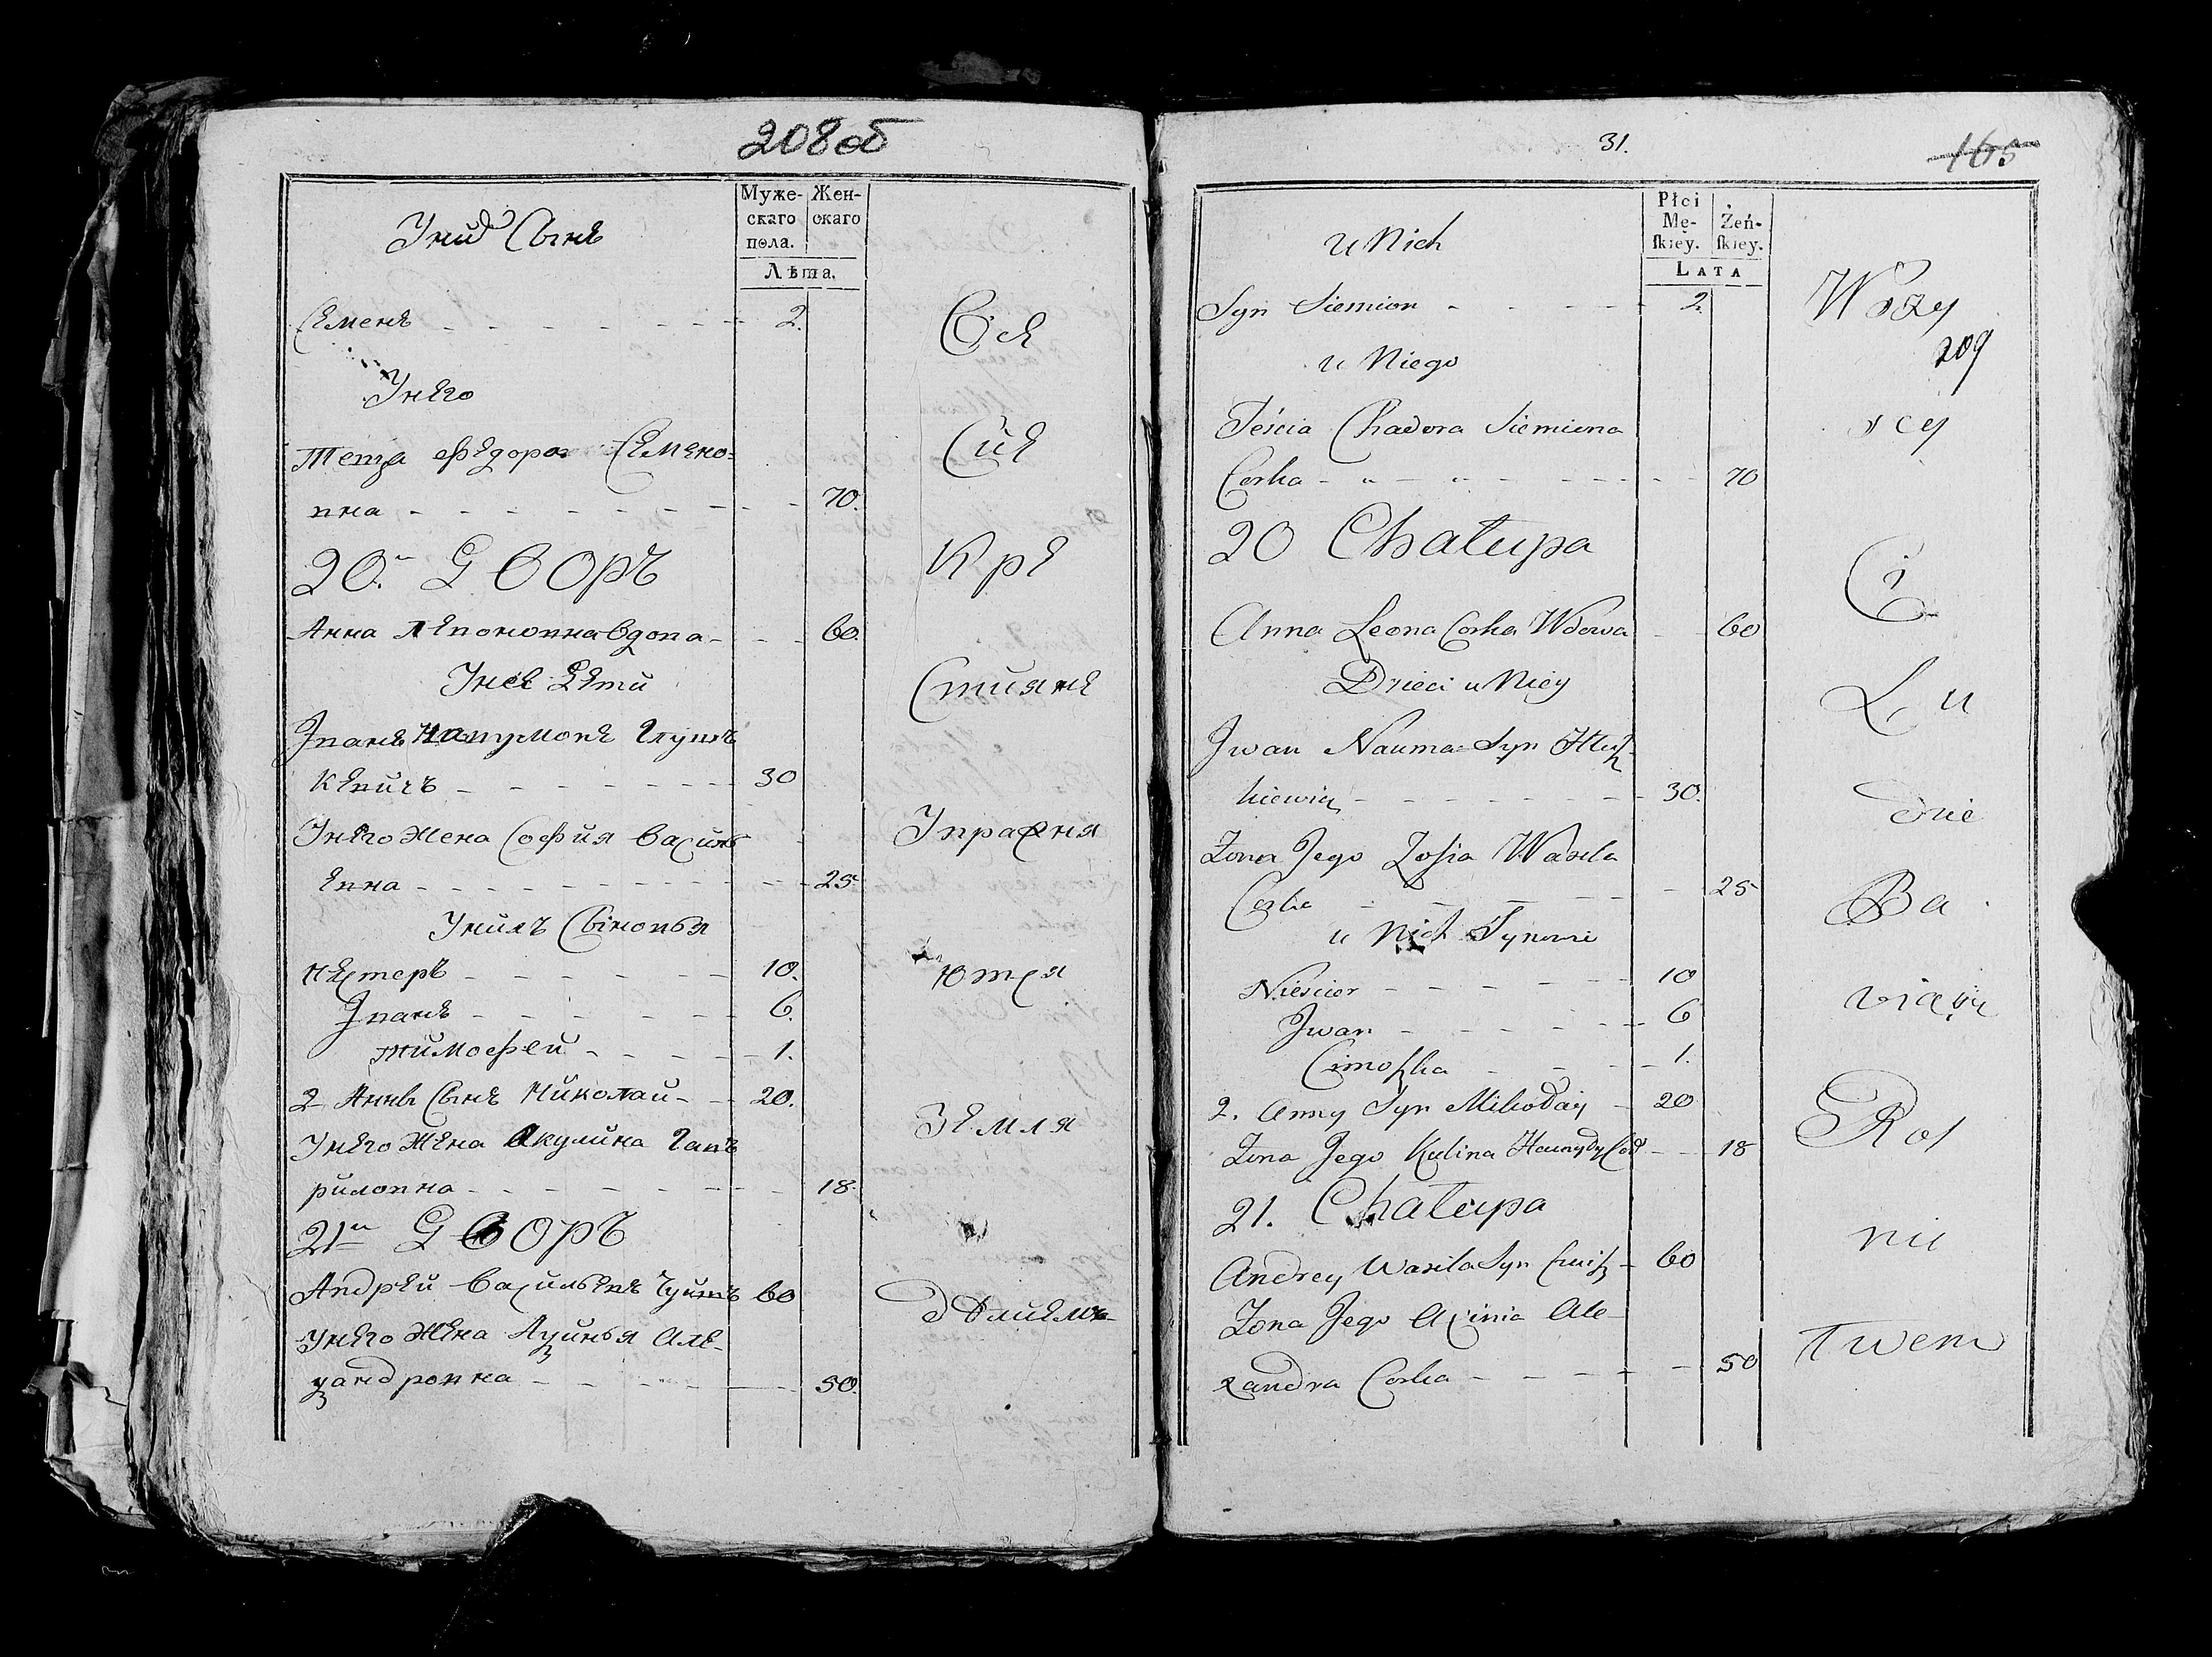 208 об
Муже-
скаго
пола.
Жен-
скаго
Лѣта.
У нихъ Сынъ
Семенъ 2.
У него
теща Федора Семено=
вна 70.
20.й Дворъ
Анна Левоновна вдова 60.
У нее дети
Иванъ Наумовъ Глуш
кевичъ 30
У него жена София Василь
евна 25
У нихъ Сыновья
Нестеръ 10.
Иванъ 6.
Тимофей 1.
2 Анны Сынъ Николай 20.
У него жена Акулина Гав
риловна 18.
21й Дворъ
Андрей Васильевъ 60
У него жена Аксинья Але-
ксандровна 50.
Все
Сие
Кре
стияне
Упражня
ются
Земля
дѣлиемъ
31.
165
Płci
Mę-
skiey.
Żeń-
skiey.
LATA
u Nich
Syn Siemion 2.
u Niego
Teścia Chadora Siemiona
Corka 70
20 Chałupa
Anna Leona Corka Wdowa 60
Dzieci u Niey
Jwan Nauma Syn Hłusz
kiewicz 30.
Zona Jego Zofia Wasila
Corka 25
u Nich Synowie
Niescier 10
Jwan 6
Cimoszka 1.
2. Anny Syn Mikołay 20
Zona Jego Kulina 18
21. Chałupa
Andrey Wasila Syn 60
Zona Jego Axinia Ale-
xandra Corka 50
Wszy
209
scy
Ci
Lu
dzie
Ba
wią się
Rol
nic
twem